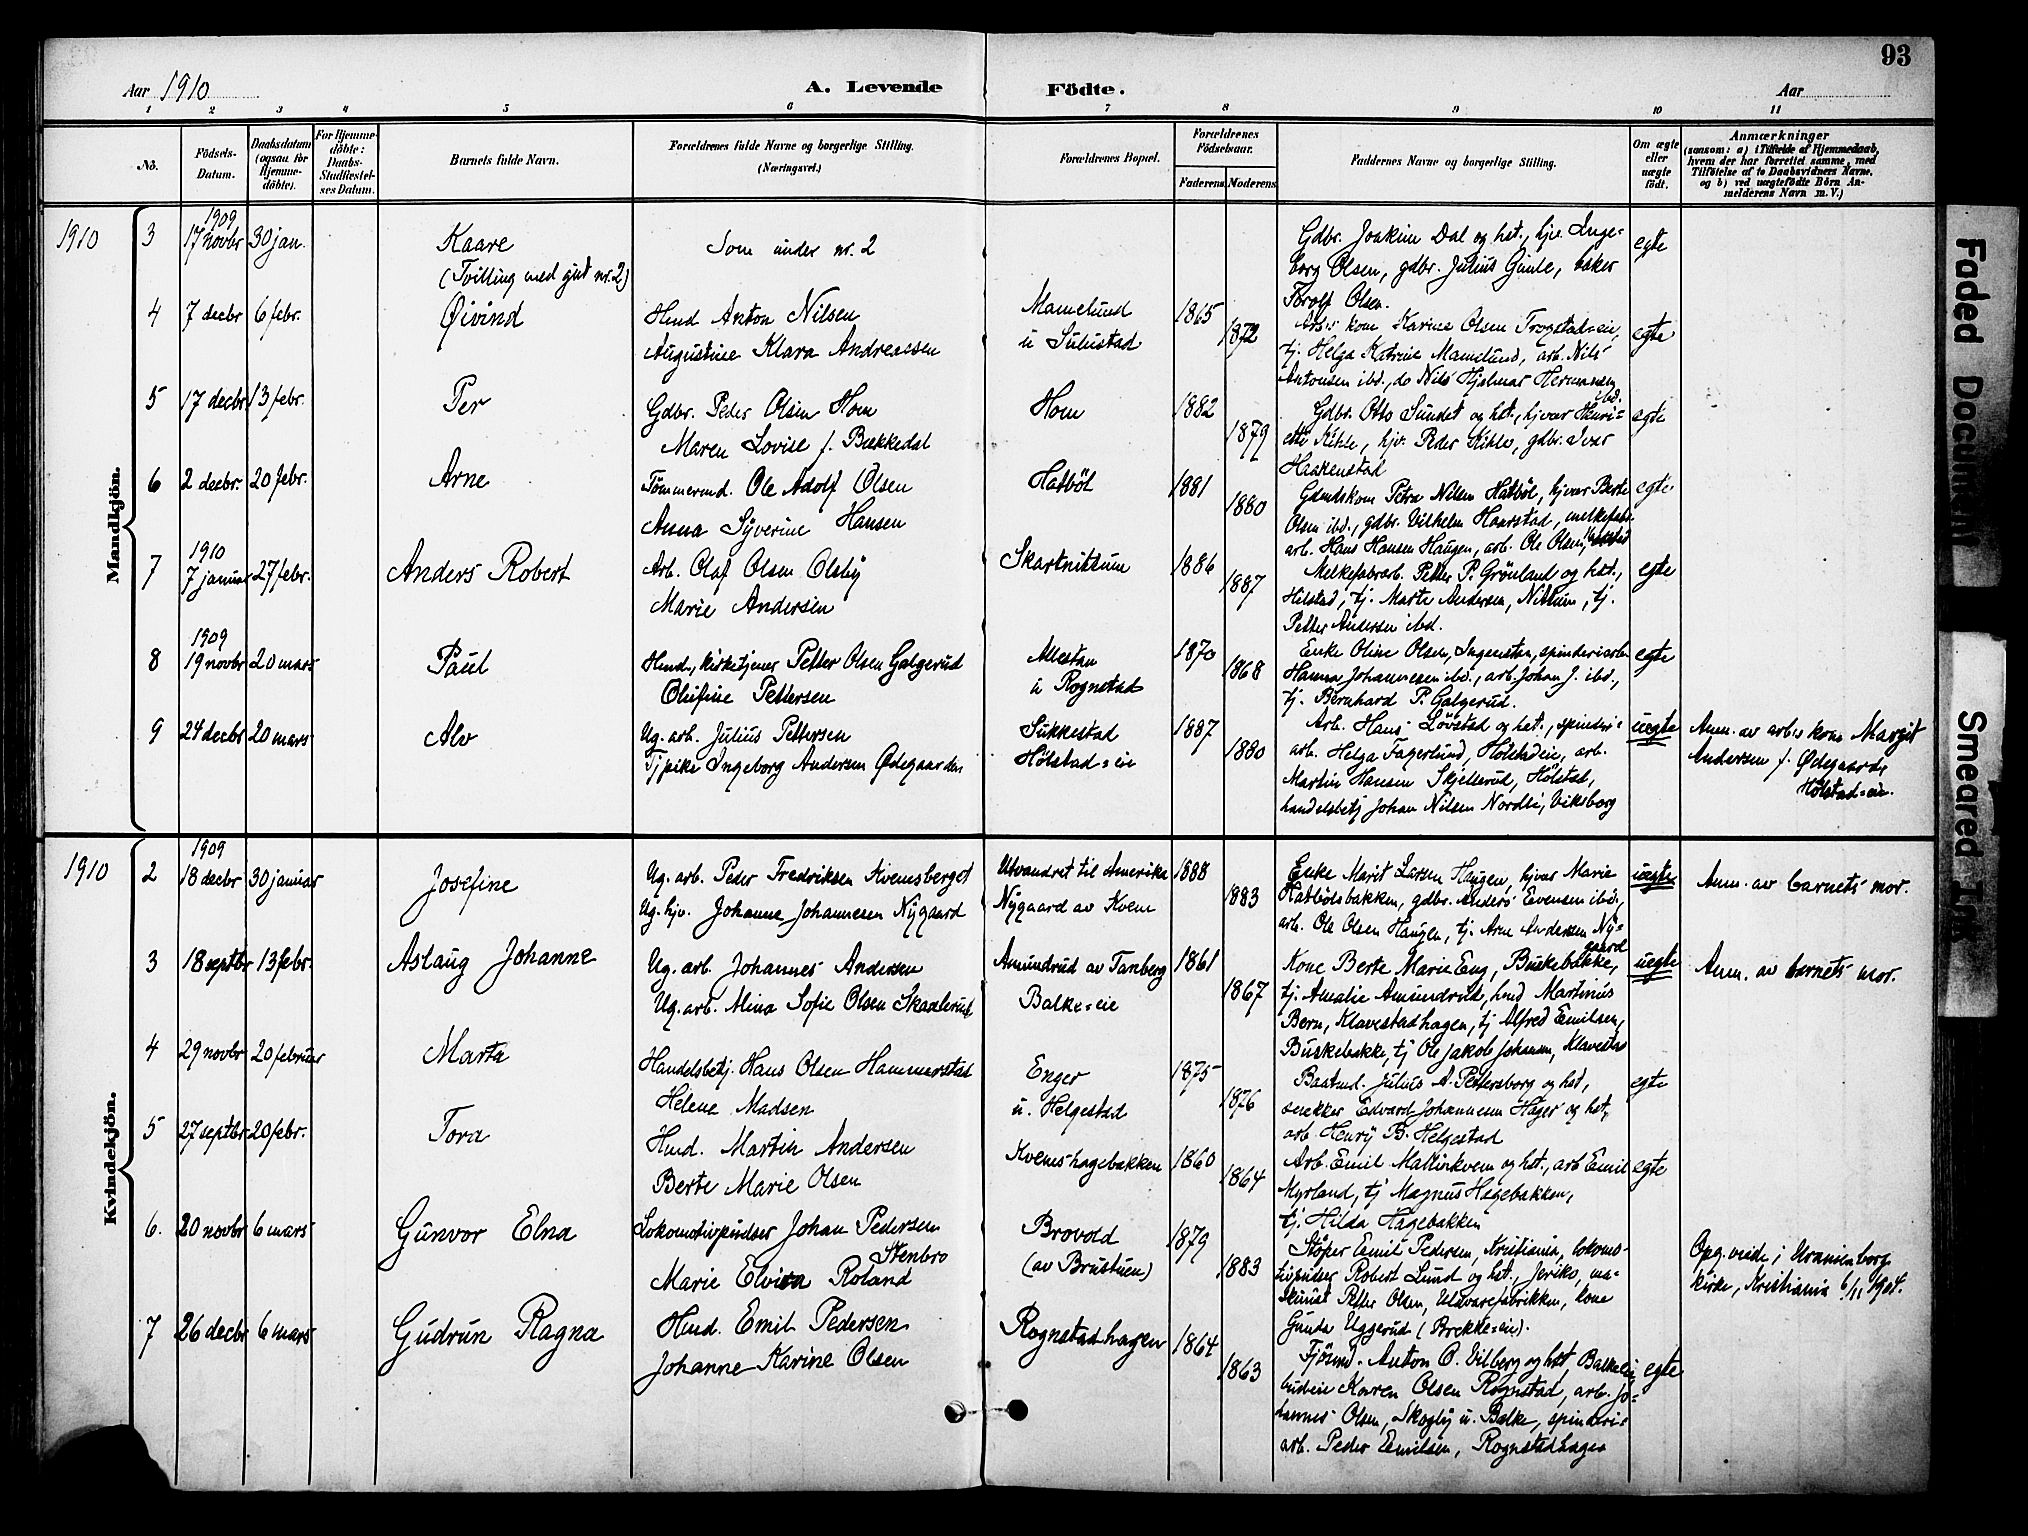 93
Aar 1910
A. Levende Födte.
Aar
1 2 3 4 5 6 7 8 9 10 11
No.
Födsels-Datum.
Daabsdatum (ogsaa för Hjemmedöbte).
For Hjemmedöbte: Daabs-Stadfæstelses Datum.
Barnets fulde Navn.
Forældrenes fulde Navne og borgerlige Stilling. (Næringsvei.)
Forældrenes Bopæl.
Forældrenes Födselsaar.
Faderens. Moderens.
Faddernes Navne og borgerlige Stilling.
Om ægte eller uægte födt.
Anmærkninger
(saasom: a) i Tilfælde af Hjemmedaab, hvem der har forrettet samme, med Tilföielse af to Daabsvidners Navne, og b) ved uægtefödte Börn Anmelderens Navn m. V.)
Mandkjön.
1910 3 1909 17 novbr 30 jan. Kaare
(Tvilling med gut nr. 2)
Som under nr. 2
Gdbr. Joakim Dal og hst., hjv. Inge=
borg Olsen, gdbr. Julius Gunle, baker
Torolf Olsen.
egte
4 7 decbr 6 febr. Øivind
Hmd Anton Nilsen
Augustine Klara Andreassen
Mamelund
u Sulustad
1865 1872
Arb. kone Karine Olsen Trogstad=eie,
tj. Helga Katrine Mamelund, arb. Nils
Antonsen ibd., do Nils Hjalmar Hermansen ibd.
egte
5 17 decbr 13 febr. Per
Gdbr. Peder Olsen Hom
Maren Lovise f. Bækkedal
Hom
1882 1879
Gdbr. Otto Sundet og hst., hjvær Henri=
ette Kihle, hjv. Peder Kihle, gdbr. Ivar
Haakenstad
egte
6 2 decbr. 20 febr. Arne
Tømmermd. Ole Adolf Olsen
Anna Syverine Hansen
Hatböl
1881 1880
Gdmdskone Petra Nilsen Hatböl, hjvær Berte
Olsen ibd., gdbr. Vilhelm Haarstad, melkefabr.
arb. Hans Hansen Haugen, arb. Ole Olsen,
egte
7 1910 7 januar 27 febr. Anders Robert
Arb. Olaf Olsen Olsby
Marie Andersen
Skartnittum
1886 1887
Melkefabrarb. Petter P. Grönland og hst.,
Helstad, tj. Marte Andersen, Nittum, tj.
Petter Andersen ibd.
egte
8 1909 19 novbr 20 mars Paul
Hmd., kirketjener Petter Olsen Galgerud
Olufine Pettersen
Allestau
u Rognstad
1870 1868
Enke Oline Olsen, Ingensten, spinderiarb.
Hanna Johannessen ibd., arb. Johan J. ibd.,
tj. Bernhard P. Galgerud.
egte
9 24 decbr 20 mars Alv
Ug. arb. Julius Pettersen
Tj pike Ingeborg Andersen Ødegaarden
Sukkestad
Hölstad=eie
1887 1880
Arb. Hans Løvstad og hst., spinderi=
arb. Helga Fagerlund, Hölstadeie, arb.
Martin Hansen Skjellerud, Hölstad,
handelsbetj Johan Nilsen Nordli, Viksborg
uegte
Anm. av arb.s kone Margit
Andersen f. Ødegaarden
Hölstad=eie.
Kvindekjön.
1910 2 1909 18 decbr 30 januar Josefine
Ug. arb. Peder Fredriksen Kvemsberget
Ug. hjv. Johanne Johannesen Nygaard
Utvandret til Amerika
Nygaard av Kvem
1888 1883
Enke Marit Larsen Haugen, hjvær Marie
Hatbölsbakken, gdbr. Anders Evensen ibd.,
arb. Ole Olsen Haugen, tj. Arne Andersen Ny=
gaard
uegte
Anm. av barnets mor.
3 18 septbr 13 febr. Aslaug Johanne
Ug. arb. Johannes Andersen
Ug. arb. Mina Sofie Olsen Skaalerud
Amundrud av Tanberg
Balke=eie
1861 1867
Kone Berte Marie Eng, Buskebakke,
tj. Amalie Amundrud, hmd Martinus
Bern, Klavestadhagen, tj Alfred Emilsen,
Buskebakke, tj Ole Jakob Johansen, Klavestad
uegte
Anm. av barnets mor.
4 29 novbr 20 februar Marta
Handelsbetj. Hans Olsen Hammerstad
Helene Madsen
Enger
u. Helgestad
1875 1876
Baatmd. Julius A. Pettersborg og hst,
snekker Edvard Johannessen Hager og hst,
arb. Henry B. Helgestad
egte
5 27 septbr 20 febr. Tora
Hmd. Martin Andersen
Berte Marie Olsen
Kvemshagebakken
1860 1864
Arb. Emil Mallirkvern og hst., arb Emil
Myrland, tj Magnus Hagebakken,
tj. Hilda Hagebakken
egte
6. 20 novbr 6 mars Gunvor Elna
Lokomotivpudser Johan Pedersen
Stenbro
Marie Elvira Roland
Brovold
(av Brustuen)
1879 1883
Støper Emil Pedersen, Kristiania, lokomo=
tivpudser Robert Lund og hst., Jeriko, ma=
skinist Petter Olsen, Uldvarefabrikken, kone
Gunda Uggerud (Brekke=eie).
Opg. viede i Uranienborg
kirke, Kristiania 6/11 1904.
7 26 decbr 6 mars Gudrun Ragna
Hmd. Emil Pedersen
Johanne Karine Olsen
Rognstadhagen
1864 1863
Fjösmd. Anton O. Vilberg og hst Balkeeie,
budeie Karen Olsen Rognstad, arb. Jo=
hannes Olsen, Skogly u. Balke, spinderi=
arb. Peder Emilsen, Rognstadhagen
egte
Faded Document
Smeared Ink